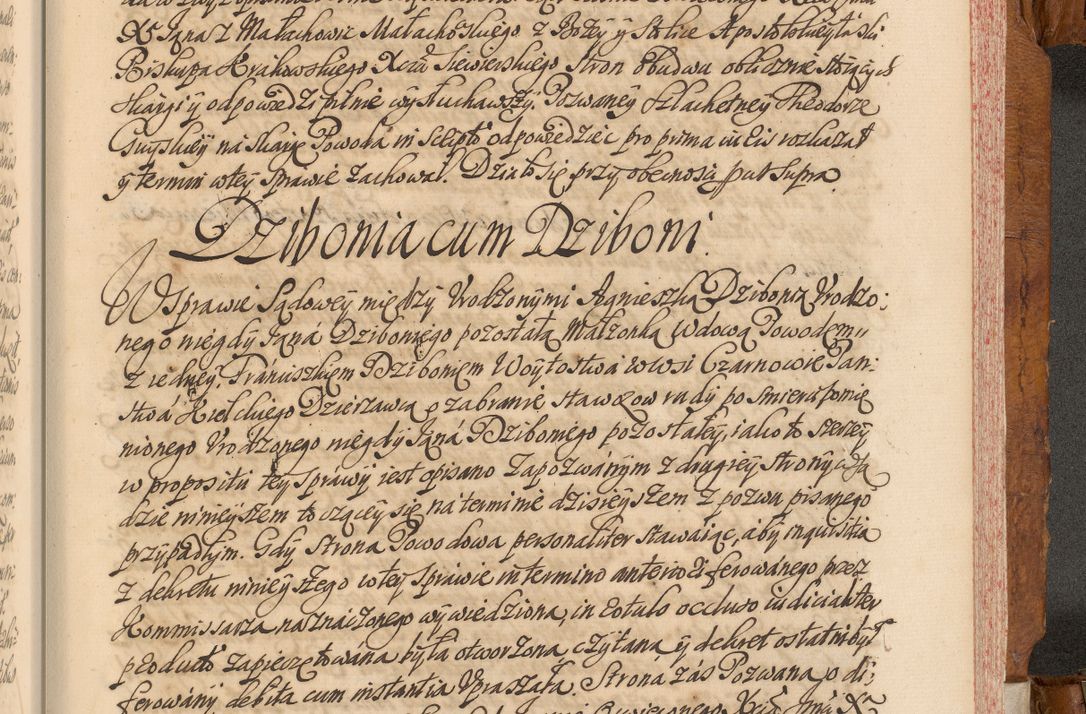 X Jana z Małachowic Małachowskiego z Bożey y S Stolice Apostolskiey łaski
Biskupa Krakowskiego Siewierskiego Stron obudwu oblicznie stoiących
skargi y odpowiedzi pilnie wysłuchawszy. Pozwaney Szlachetney Theodorze
na skargę Powoda in scripto odpowiedziec pro prima iuris rozkazał
y termin w tey sprawie zachował. Działo się przy obecnosci put supra.
Dzibonia cum Dziboni.
W Sprawie Sądowey między Vrodzonymi Agnieszką Dzibonią Vrodzo:
nego niegdy Jana Dziboniego pozostałą Małżonką Wdową Powodem
z iedney, Franciszkiem Dzibonim Woytostwa w wsi Czarnowie Pan:
stwa Kielckiego Dzierzawcą o zabranie stawkow rudy po smierci pomie
nionego Vrodzonego niegdy Jana Dziboniego pozostałey, iako to szerzey
w propositii tey sprawy iest opisano zapozwanym z drugiey strony w Są
dzie ninieyszem toczącey się na terminie dzisieyszem z pozwu pisanego
przypadłym. Gdy strona Powodowa personaliter stawaiąc, aby inquisitia
z dekretu ninieyszego w tey sprawie in termino anteriori ferowanego przez
Kommissarza naznaczonego wywiedziona, in rotulo occluso iudicialiter
producto zapieczętowana była otworzona czytana, y dekret ostatni był
ferowany debita cum instantia Vpraszała. Strona zas Pozwana, o di: